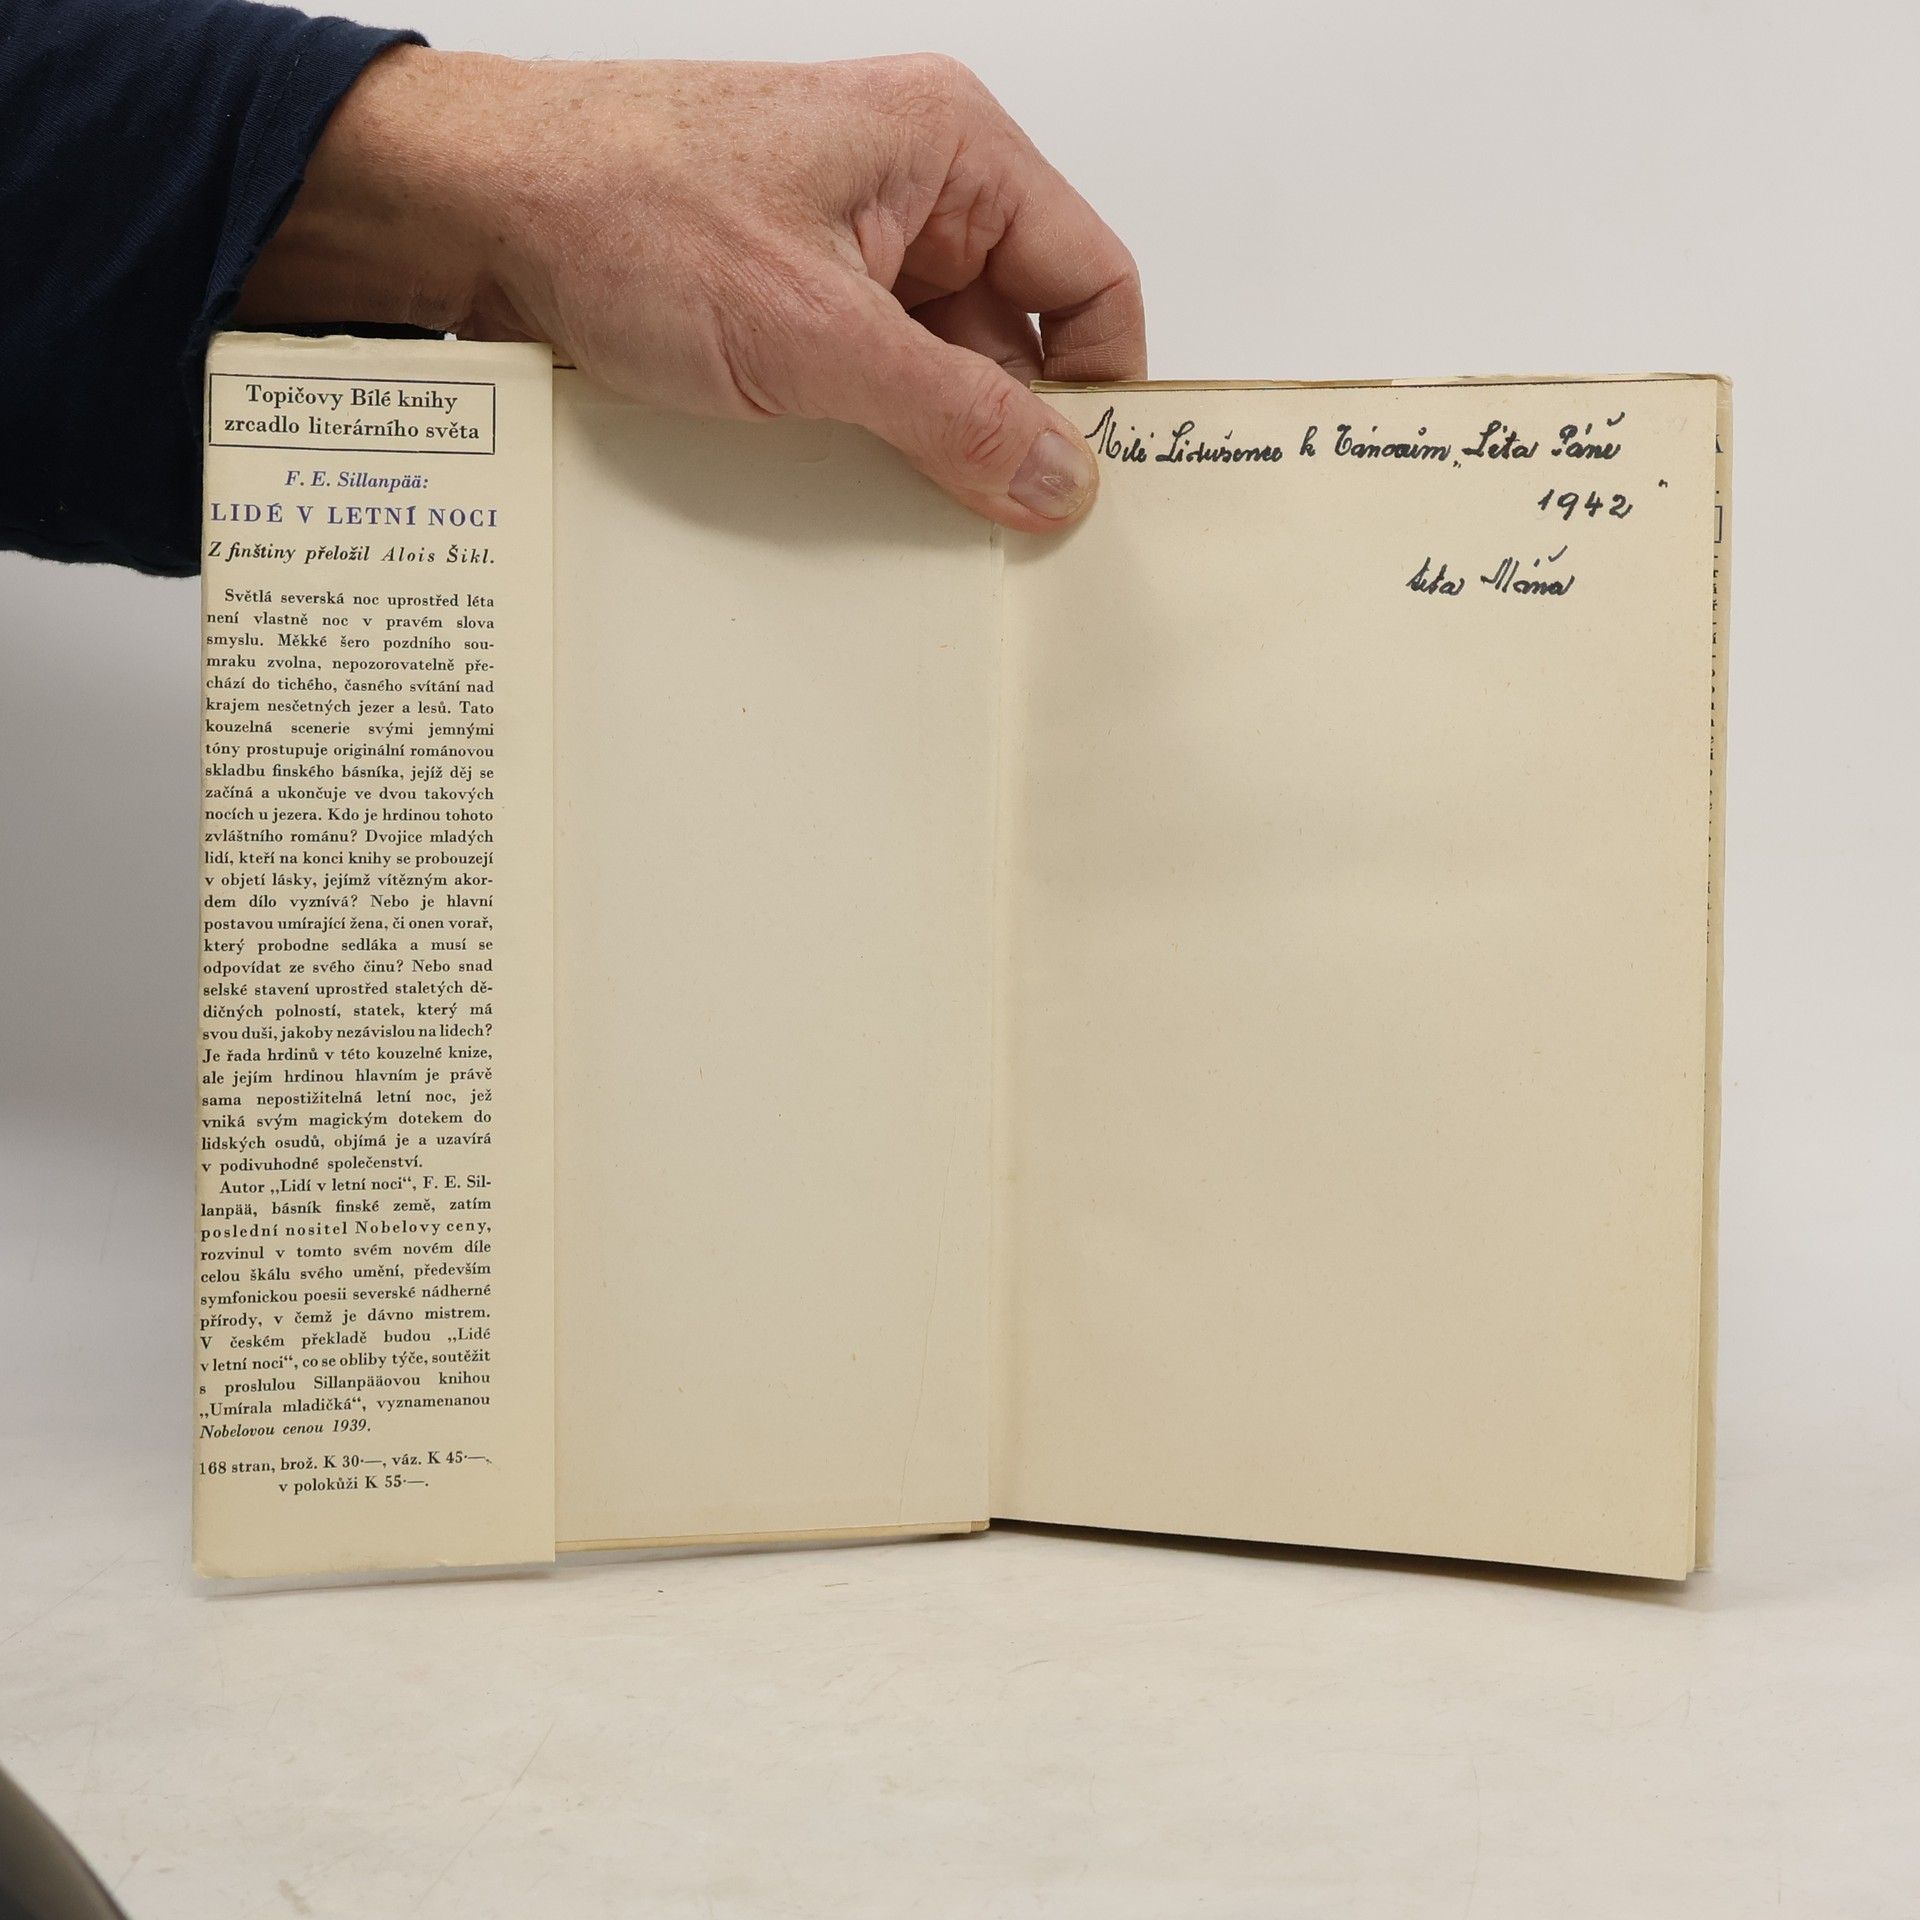 Topičovy Bílé knihy
zrcadlo literárního světa
F. E. Sillanpää:
LIDÉ V LETNÍ NOCI
Z finštiny přeložil Alois Šikl.
Světlá severská noc uprostřed léta
není vlastně noc v pravém slova
smyslu. Měkké šero pozdního sou-
mraku zvolna, nepozorovatelně pře-
chází do tichého, časného svítání nad
krajem nesčetných jezer a lesů. Tato
kouzelná scenerie svými jemnými
tóny prostupuje originální románovou
skladbu finského básníka, jejíž děj se
začíná a ukončuje ve dvou takových
nocích u jezera. Kdo je hrdinou tohoto
zvláštního románu? Dvojice mladých
lidí, kteří na konci knihy se probouzejí
v objetí lásky, jejímž vítězným akor-
dem dílo vyznívá? Nebo je hlavní
postavou umírající žena, či onen vorař,
který probodne sedláka a musí se
odpovídat ze svého činu? Nebo snad
selské stavení uprostřed staletých dě-
dičných polností, statek, který má
svou duši, jakoby nezávislou na lidech?
Je řada hrdinů v této kouzelné knize,
ale jejím hrdinou hlavním je právě
sama nepostižitelná letní noc, jež
vniká svým magickým dotekem do
lidských osudů, objímá je a uzavírá
v podivuhodné společenství.
Autor „Lidí v letní noci“, F. E. Sil-
lanpää, básník finské země, zatím
poslední nositel Nobelovy ceny,
rozvinul v tomto svém novém díle
celou škálu svého umění, především
symfonickou poesii severské nádherné
přírody, v čemž je dávno mistrem.
V českém překladě budou „Lidé
v letní noci“, co se obliby týče, soutěžit
s proslulou Sillanpääovou knihou
„Umírala mladičká“, vyznamenanou
Nobelovou cenou 1939.
168 stran, brož. K 30·—, váz. K 45·—,
v polokůži K 55·—.
Milé Lidušence k Vánocům „Léta Páně
1942"
teta Máňa